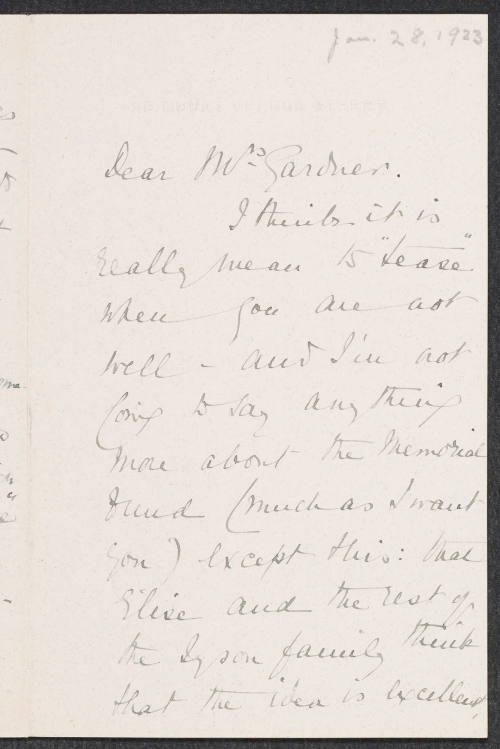 Jan. 28, 1923
Dear Mrs Gardner.
I think it is
really mean to "tease"
when you are not
well - and I'm not
going to say anything
more about the Memorial
Fund (much as I want
you) except this: that
Elise and the rest of
the Tyson family think
that the idea is excellent,